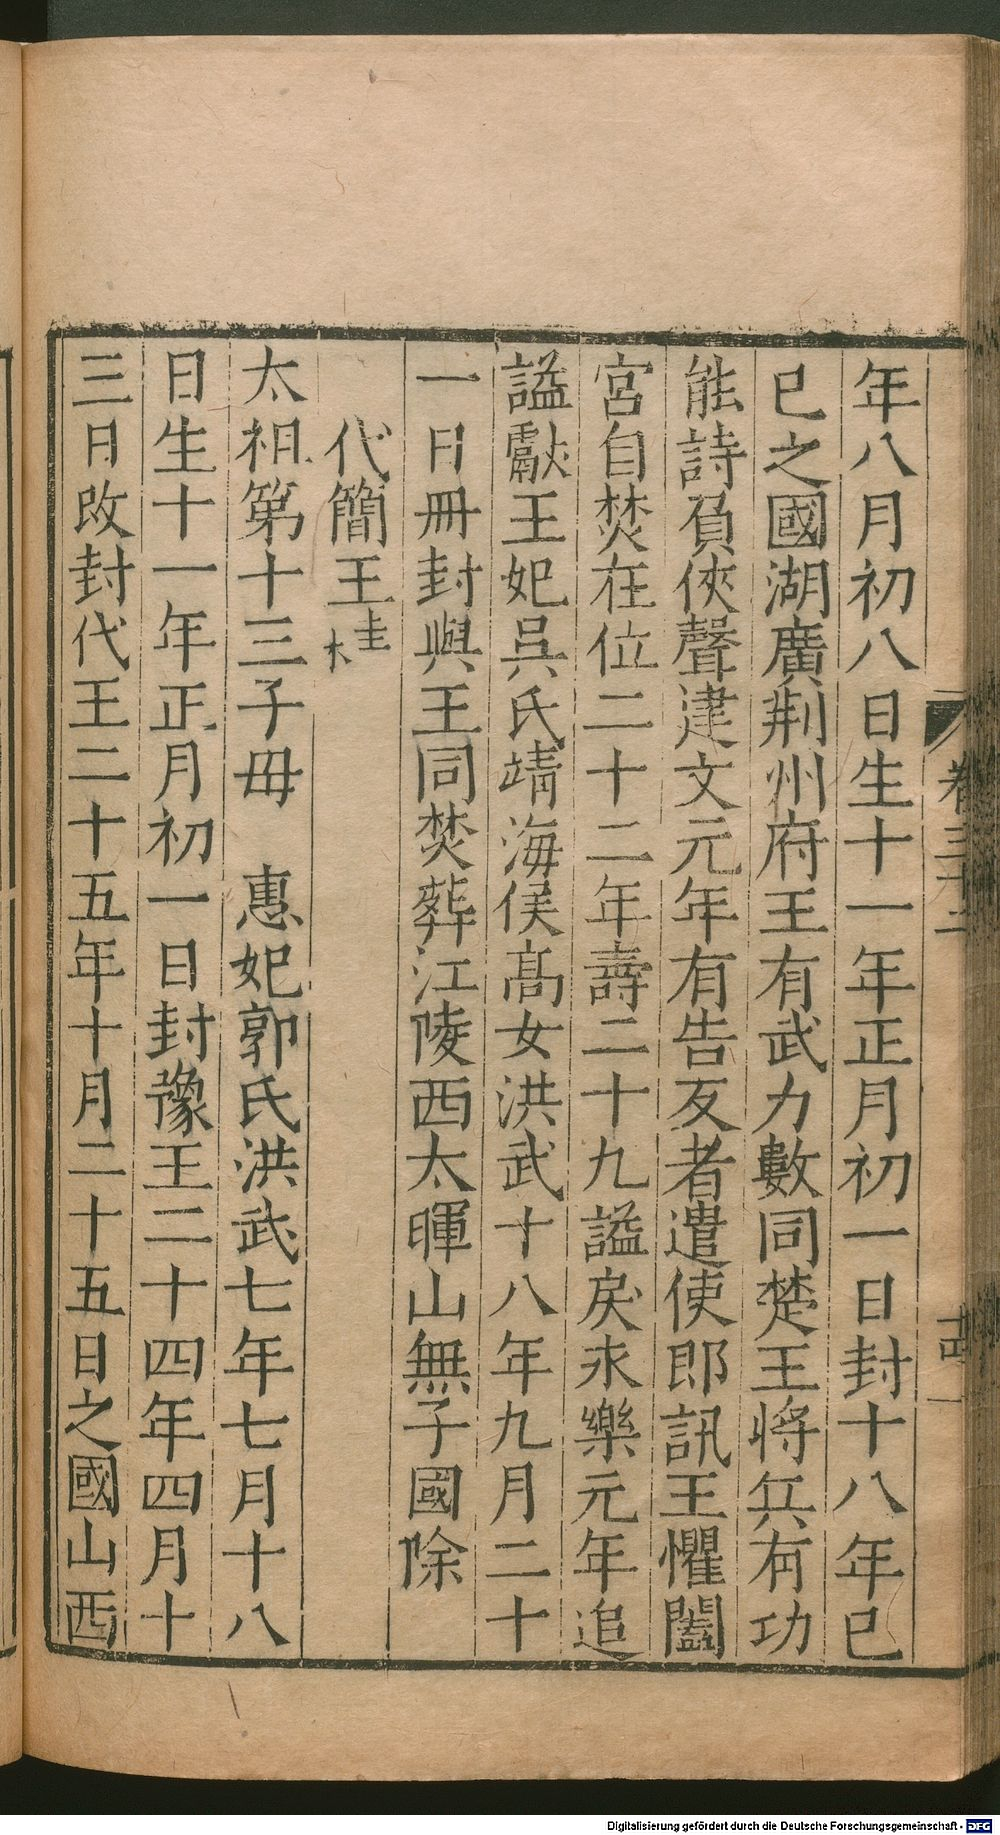 年八月初八日生十一年正月初一日封十八年已
已之國湖廣荆州府王有武力數同楚王將兵有功
能詩負俠聲建文元年有告反者遣使即訊王懼闔
宮自焚在位二十二年壽二十九謚戾永樂元年追
謚獻王妃吳氏靖海侯髙女洪武十八年九月二十
一日冊封與王同焚葬江陵西太暉山無子國除
代簡王桂
太祖第十三子毋 惠妃郭氏洪武七年七月十八
日生十一年正月初一日封豫王二十四年四月十
三月改封代王二十五年十月二十五日之國山西
卷三十二
十四
Digitalisierung gefördert durch die Deutsche Forschungsgemeinschaft - DFG